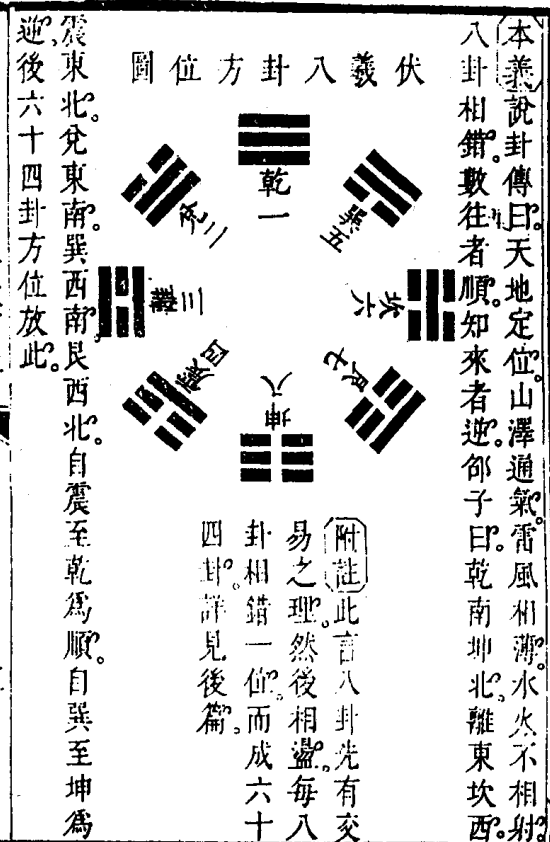 本義說卦傳曰。天地定位。山澤通氣。雷風相薄。水火不相射。
八卦相錯。數往者順。知來者逆。邵子曰。乾南坤北。離東坎西。
圖位方卦八羲伏
乾一
兌二
三離
四震
巽五
坎六
艮七
坤八
附註此言八卦先有交
易之理。然後相盪。每八
卦相錯一位。而成六十
四卦。詳見後篇。
震東北。兌東南。巽西南。艮西北。自震至乾爲順。自巽至坤爲
逆。後六十四卦方位放此。